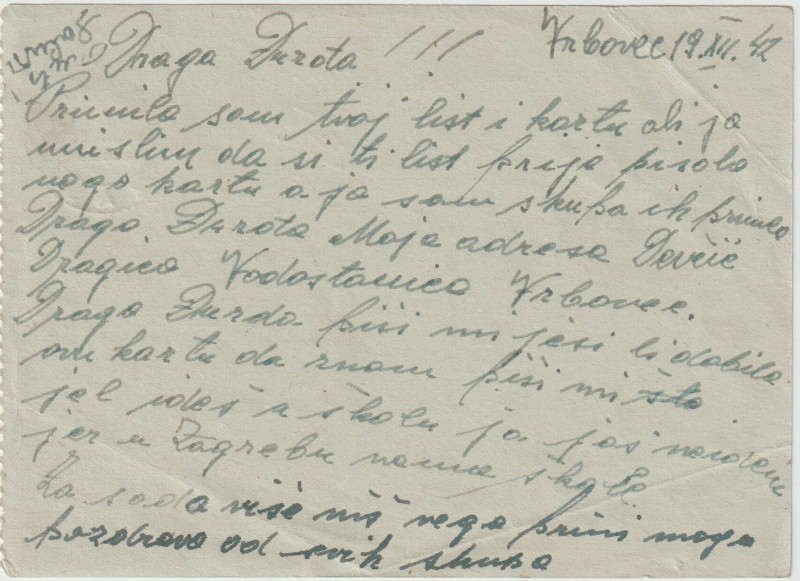 Vrbovec 19 XII. 42
Draga Đurđa !!!
Primila sam tvoj list i kartu ali ja
mislim da si ti list prije pisala
nego kartu a ja sam skupa ih primila
Draga Đurđa Moja adresa Devčić
Dragica Vodostanica Vrbovec.
Draga Đurđa piši mi jesi li dobila
ovu kartu da znam piši mi šta
jel ideš u školu ja još neidem
jer u Zagrebu nema škole
Za sada više niš nego primi moga
pozdrava od svih skupa